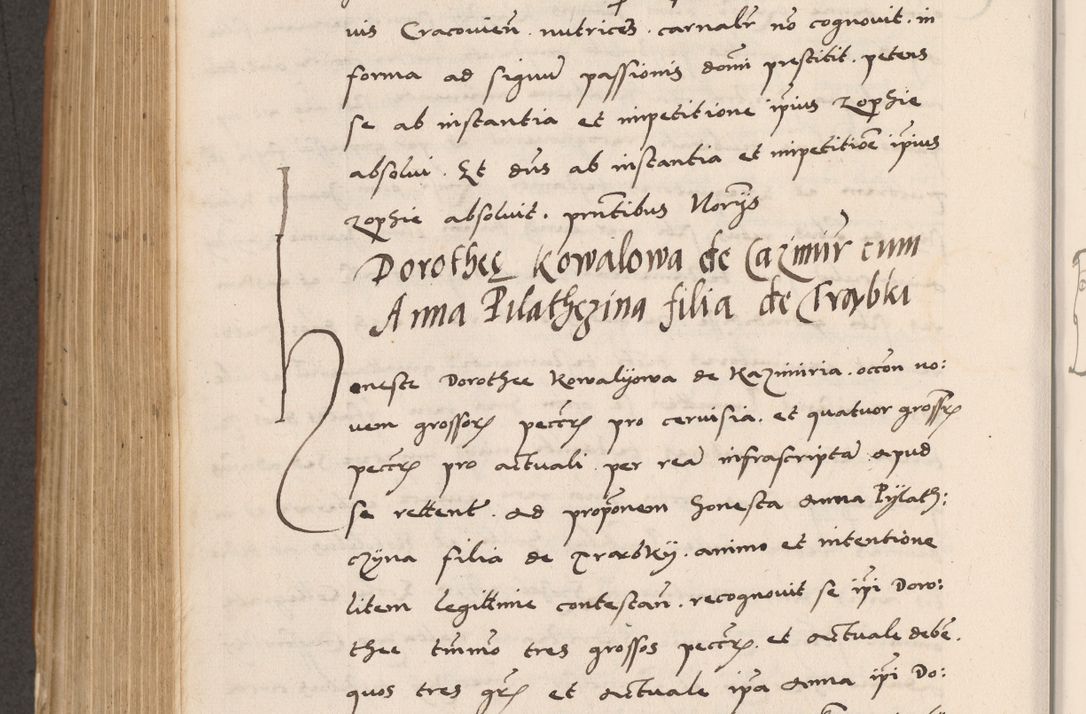 uis Cracouień. nutrices. carnalr̄ nō cognouit. in
forma ad signū passionis domi prestitit. petens
se ab instantia et impetitione ip̄ius zophie
absolui. Et dn̄s ab instantia et impetitiōe ip̄ius
zophie absoluit. pn̄tibus Norijs
Dorotheę Kowalowa de Cazimir̄ cum
Anna Pilathczina filia de Trąbki
Honeste Dorothee Kowalijowa de Kazimiria. occōn no:
uem grossorꝝ pecc̄rꝝ pro ceruisia. et quatuor grossꝝ
pecc̄rꝝ pro actuali per reā infrascriptā apud
se retent̄. ad proposn̄em honesta Anna Pÿlath:
czyna filia de Trąbkÿ. animo et intentione
litem legittime contestan̄. recognouit se ip̄i Doro:
thee tm̄mō tres grossos pecc̄rꝝ. et actuale debē.
quos tres gr̄ꝝ et actuale ip̄a Anna ip̄i Do: